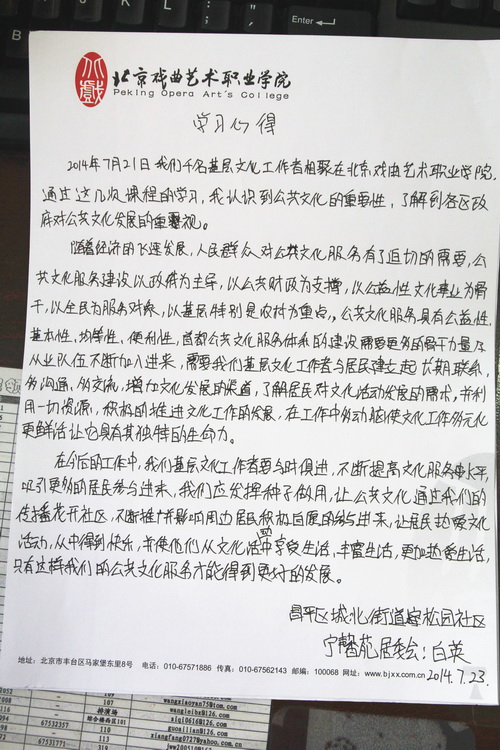 Enter
北戲
北京戏曲艺术职业学院
Peking Opera Art's College
学习心得
2014年7月21日我们千名基层文化工作者相聚在北京戏曲艺术职业学院,
通过这几次课程的学习,我认识到公共文化的重要性,了解到各区政
府对公共文化发展的重视。
随着经济的飞速发展,人民群众对公共文化服务有了迫切的需要,公
共文化服务建设以政府为主导,以公共财政为支撑,以公益性文化事业为骨
干,以全民为服务对象,以基层特别是农村为重点,公共文化服务具有公益性、
基本性、均等性、便利性,首都公共文化服务体系的建设需要更多的骨干力量及
从业队伍不断加入进来,需要我们基层文化工作者与居民建立起长期联系,
多沟通,多交流,增加文化发展的渠道,了解居民对文化活动发展的需求,并利
用一切资源,积极的推进文化工作的发展,在工作中多动脑使文化工作多元化
更鲜活让它具有其独特的生命力。
在今后的工作中,我们基层文化工作者要与时俱进,不断提高文化服务水平,
吸引更多的居民参与进来,我们应发挥种子做用,让公共文化通过我们的
传播花开社区,不断推广并影响周边居民积极自愿的参与进来,让居民热爱文化
活动,从中得到快乐,并使他们从文化活动中享受生活,丰富生活,更加热爱生活,
只有这样我们的公共文化服务才能得到更好的发展。
昌平区城北街道 园社区
宁馨苑居委会:白英
2014.7.23.
地址:北京市丰台区马家堡东里8号 电话:010-67571886 传真:010-67562143 邮编:100068 网址:www.bjxx.com.cn
107
109
wangxiaoyan75@126.com
持演场
wanglei@126.com
综合楼西区101
ziqi0616@126.com
67532357
118
guoailian@126.com
110
xiangfang0727@yahoo.com.cn
67531771
119